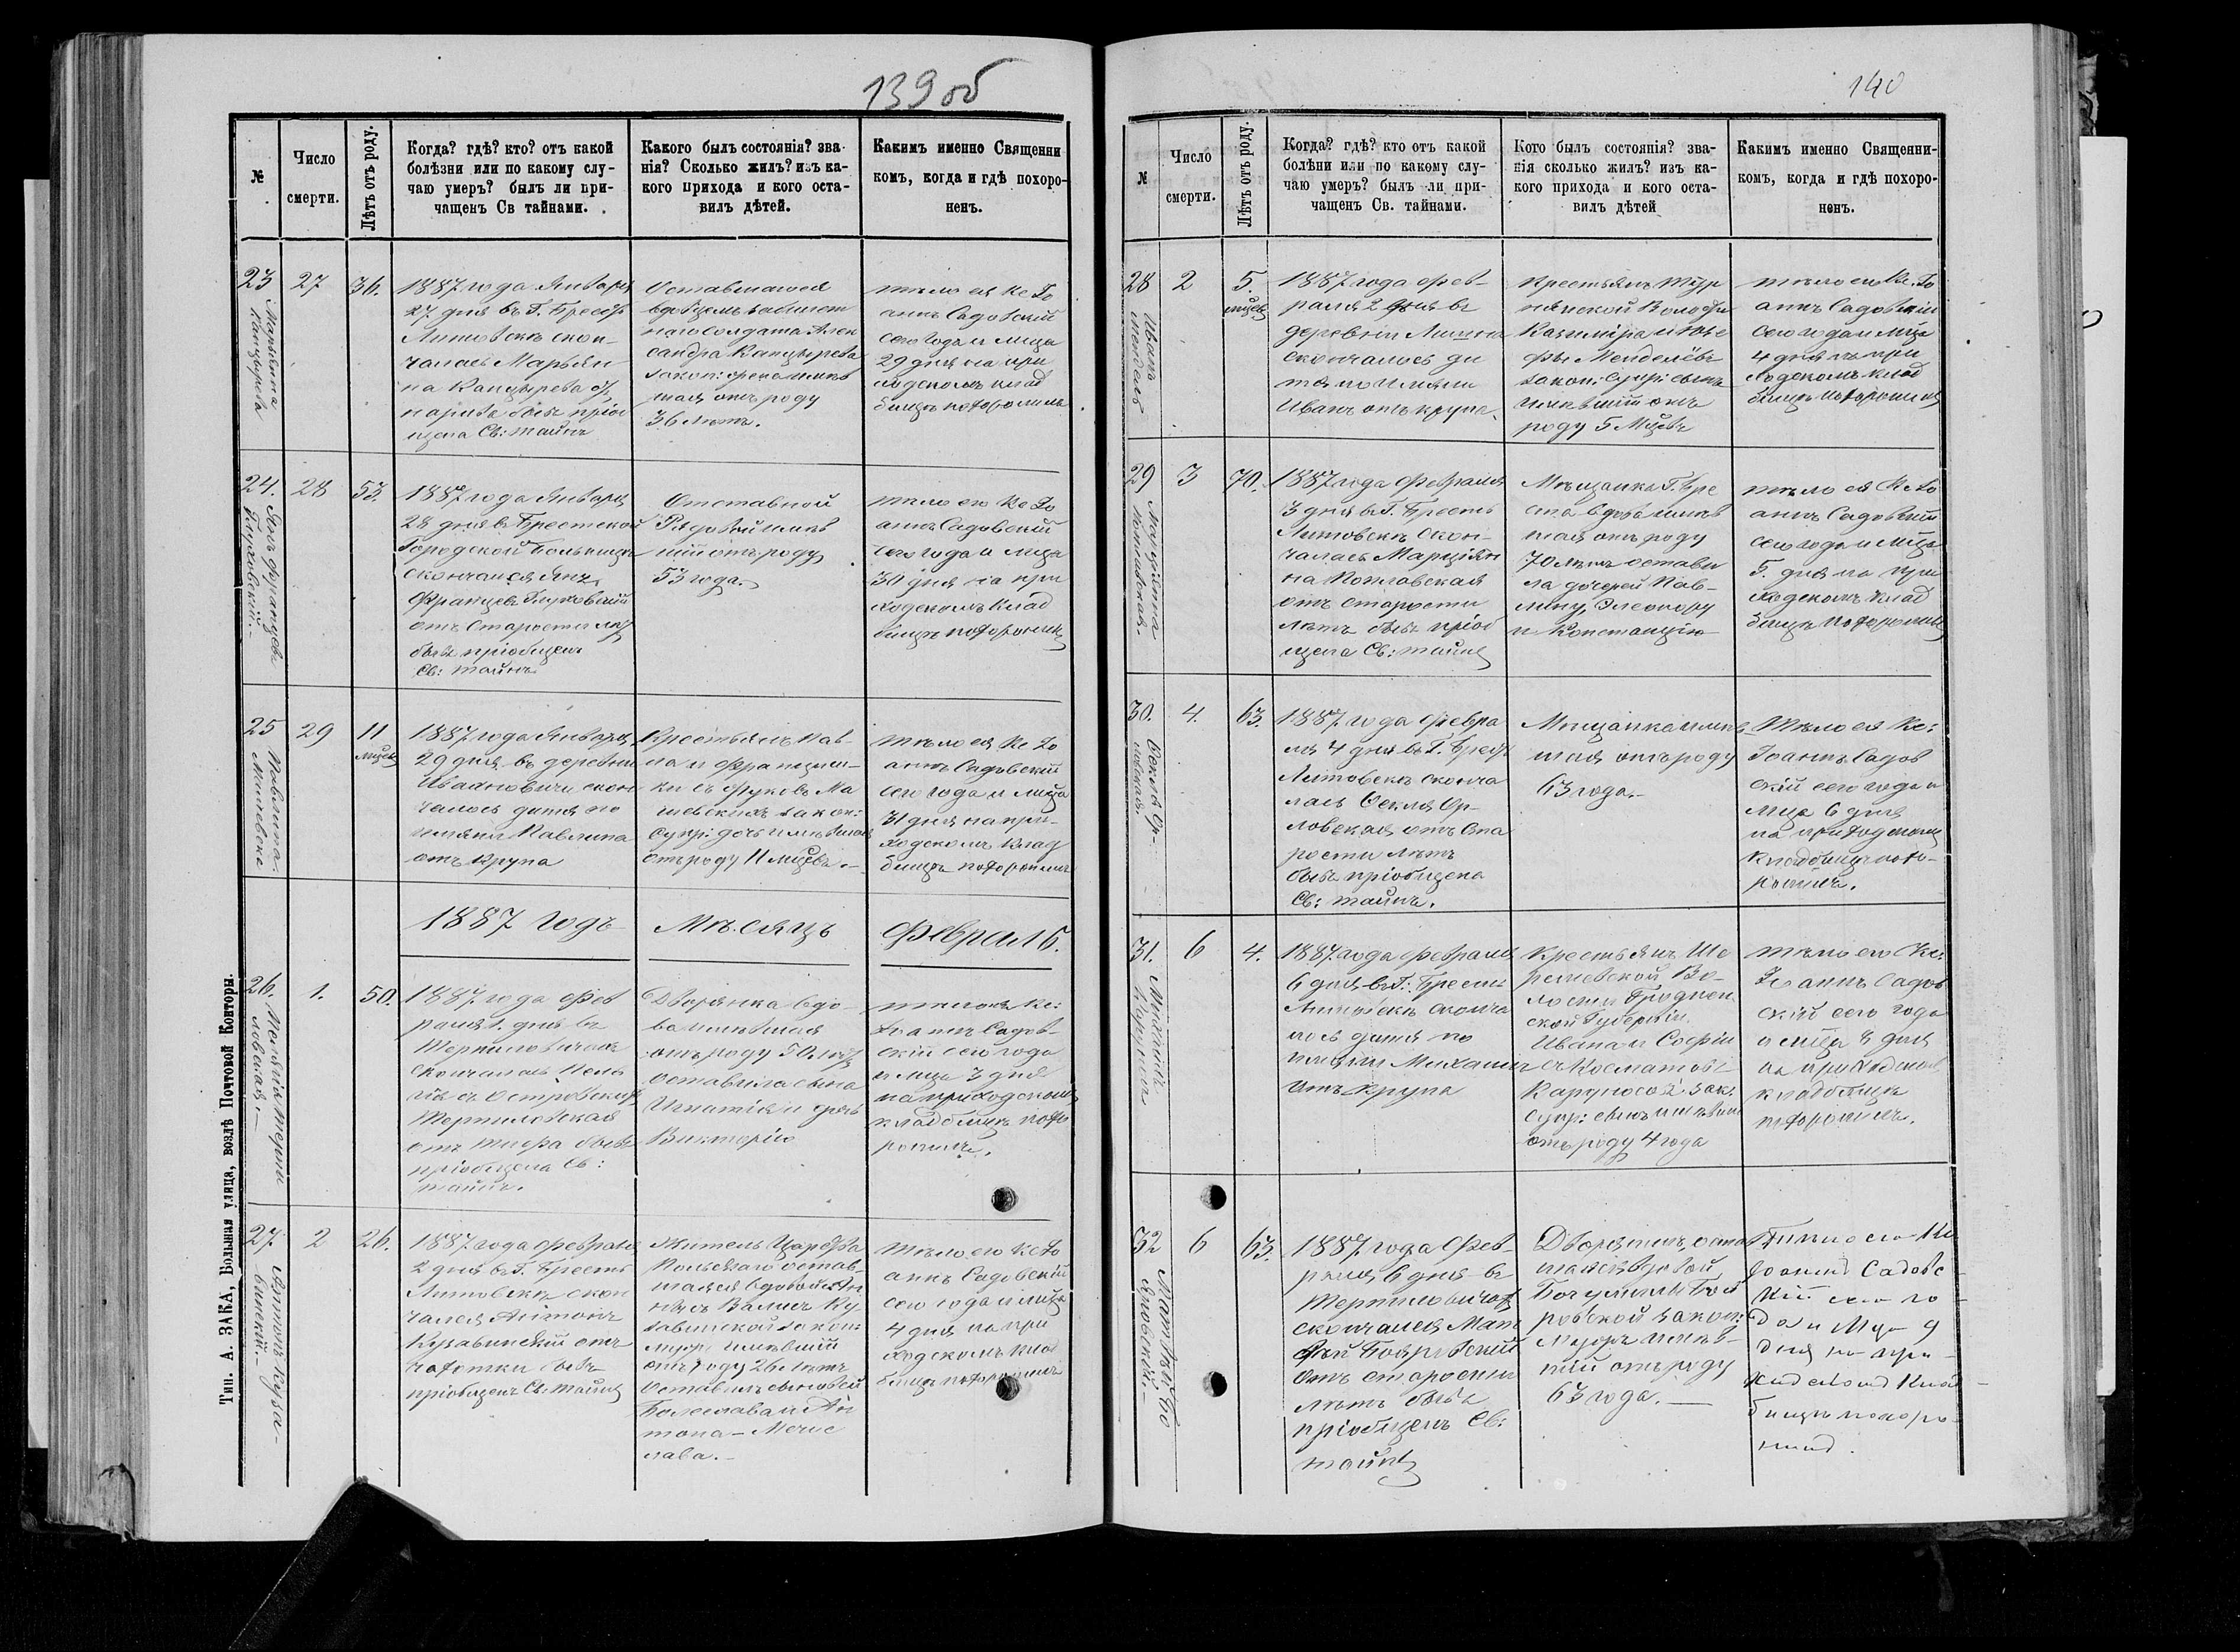 139 об
№
Число смерти.
Лѣтъ отъ роду.
Когда? гдѣ? кто? отъ какой
болѣзни или по какому слу-
чаю умеръ? былъ ли при-
чащенъ Св тайнами.
Какого былъ состоянія? зва-
нія? Сколько жилъ? изъ ка-
кого прихода и кого оста-
вилъ дѣтей.
Какимъ именно Священни
комъ, когда и гдѣ похоро-
ненъ.
23
Марьянна
27
36.
1887 года Января
27 дня въ Г. Брестъ
Литовскъ скон-
чалась Марьян-
на
бывъ пріоб
щена Св: тайнъ
Оставшагося
вдовцемъ
наго солдата Алек
сандра
закон: жена имѣв
шая отъ роду
36 лѣтъ.
тѣло ея Кс Іо
аннъ Садовскій
сего года и мца
29 дня на при
ходскомъ клад
бищѣ похоронилъ
24.
Янъ Францевъ
Глуховскій.
28
53.
1887 года Января
28 дня въ Брестской
Городской Больницѣ
скончался Янъ
Францевъ Глуховскій
отъ старости лѣтъ
бывъ пріобщенъ
Св: тайнъ
Отставной
Рядовой имѣв
шій отъ роду
53 года.
тѣло его Кс Іо
аннъ Садовскій
сего года и мца
30 дня на при
ходскомъ клад
бищѣ похоронилъ
25
Павлина
29
11
мцевъ
1887 года Января
29 дня въ деревни
Ивахновичи скон
чалось дитя по
имяни Павлина
отъ крупа
Крестьянъ Пав-
ла и Францишки
закон:
супр: дочь имѣвшая
отъ роду 11 мцевъ.
тѣло ея Кс Іо
аннъ Садовскій
сего года и мца
31 дня на при-
ходскомъ клад
бищѣ похоронилъ
1887 годъ Мѣсяцъ Февраль.
26.
1.
50.
1887 года Фев
раля 1. дня въ
Тертиловичахъ
скончалась
съ Островскихъ
Тертиловская
отъ тифа бывъ
пріобщена Св:
тайнъ.
Дворянка вдо-
ва имѣвшая
отъ роду 50 лѣтъ
оставила сына
Игнатія и дочь
Викторію
тѣло ея Кс:
Іоаннъ Садов-
скій сего года
и мца 3 дня
на приходскомъ
кладбищѣ похо
ронилъ.
27.
Антонъ Куза-
винскій.
2
26.
1887 года Февраля
2 дня въ Г. Брестъ
Литовскъ скон
чался Антонъ
Кузавинскій отъ
чахотки бывъ
пріобщенъ Св: тайнъ
Житель Царства
Польскаго остав-
шаяся вдовой Ан
ны съ Ку
завинской закон:
мужъ имѣвшій
отъ роду 26 лѣтъ
оставилъ сыновей
Болеслава и Ан
тона-Мечис
лава.
тѣло его Кс Іо
аннъ Садовскій
сего года и мца
4 дня на при
ходскомъ клад
бищѣ похоронилъ
Тип. А. ЗАКА, Большая улица, возлѣ Почтовой Конторы.
140
№
Число смерти.
Лѣтъ отъ роду.
Когда? гдѣ? кто отъ какой
болѣзни или по какому слу-
чаю умеръ? былъ ли при-
чащенъ Св. тайнами.
Кого былъ состоянія? зва-
нія сколько жилъ? изъ ка-
кого прихода и кого оста-
вилъ дѣтей
Какимъ именно Священни-
комъ, когда и гдѣ похоро-
ненъ.
28
Иванъ
2
5.
мцевъ
1887 года Фев-
раля 2 дня въ
деревни
скончалось ди
тя по имяни
Иванъ отъ крупа.
Крестьянъ Тур
нянской Волости
Казиміра и Юзе
фы
закон: супр: сынъ
имѣвшій отъ
роду 5 Мцевъ
тѣло его Кс. Іо
аннъ Садовскій
сего года и мца
4 дня на при
ходскомъ клад
бищѣ похоронилъ
29
3
70.
1887 года Февраля
3 дня въ Г. Брестъ
Литовскъ скон-
чалась Марціян
на
отъ старости
лѣтъ бывъ пріоб
щена Св: тайнъ
Мѣщанка Г. Бре
ста вдова имѣв
шая отъ роду
70 лѣтъ остави
ла дочерей Пав-
лину, Элеонору
и Констанцію
тѣло ея Кс Іо
аннъ Садовскій
сего года и мца
5. дня на при
ходскомъ клад
бищѣ похоронилъ
30.
Ѳекля Ор-
ловская.
4.
63.
1887 года Февра
ля 4 дня въ Г. Брестъ
Литовскъ сконча
лась Ѳекля Ор-
ловская отъ ста
рости лѣтъ
бывъ пріобщена
Св: тайнъ.
Мѣщанка имѣв
шая отъ роду
63 года.
тѣло ея Кс:
Іоаннъ Садов
скій сего года и
мца 6 дня
на приходскомъ
кладбищѣ похо-
ронилъ.
31.
Михаилъ
6
4.
1887 года Февраля
6 дня въ Г: Брестъ
Литовскъ сконча
лось дитя по
имяни Михаилъ
отъ крупа
Крестьянъ Ше
решевской Во-
лости Гроднен
ской Губерніи
Ивана и Софіи
зак.
супр: сынъ имѣвшій
отъ роду 4 года
тѣло его Кс:
Іоаннъ Садов
скій сего года
и мца 8 дня
на приходскомъ
кладбищѣ
похоронилъ.
32
6
63.
1887 года Фев-
раля 6 дня въ
Тертиловичахъ
скончался Мат
вѣй Бобровскій
отъ старости
лѣтъ бывъ
пріобщенъ Св:
тайнъ
Дворянинъ, оста
шаяся вдовой
Богумилы Боб
ровской закон:
мужъ имѣв-
шій отъ роду
63 года.
Тѣло его Кс
Іоаннъ Садовс
кій сего го-
да и Мца 9
дня на при-
ходскомъ клад-
бищѣ похоро-
нилъ.